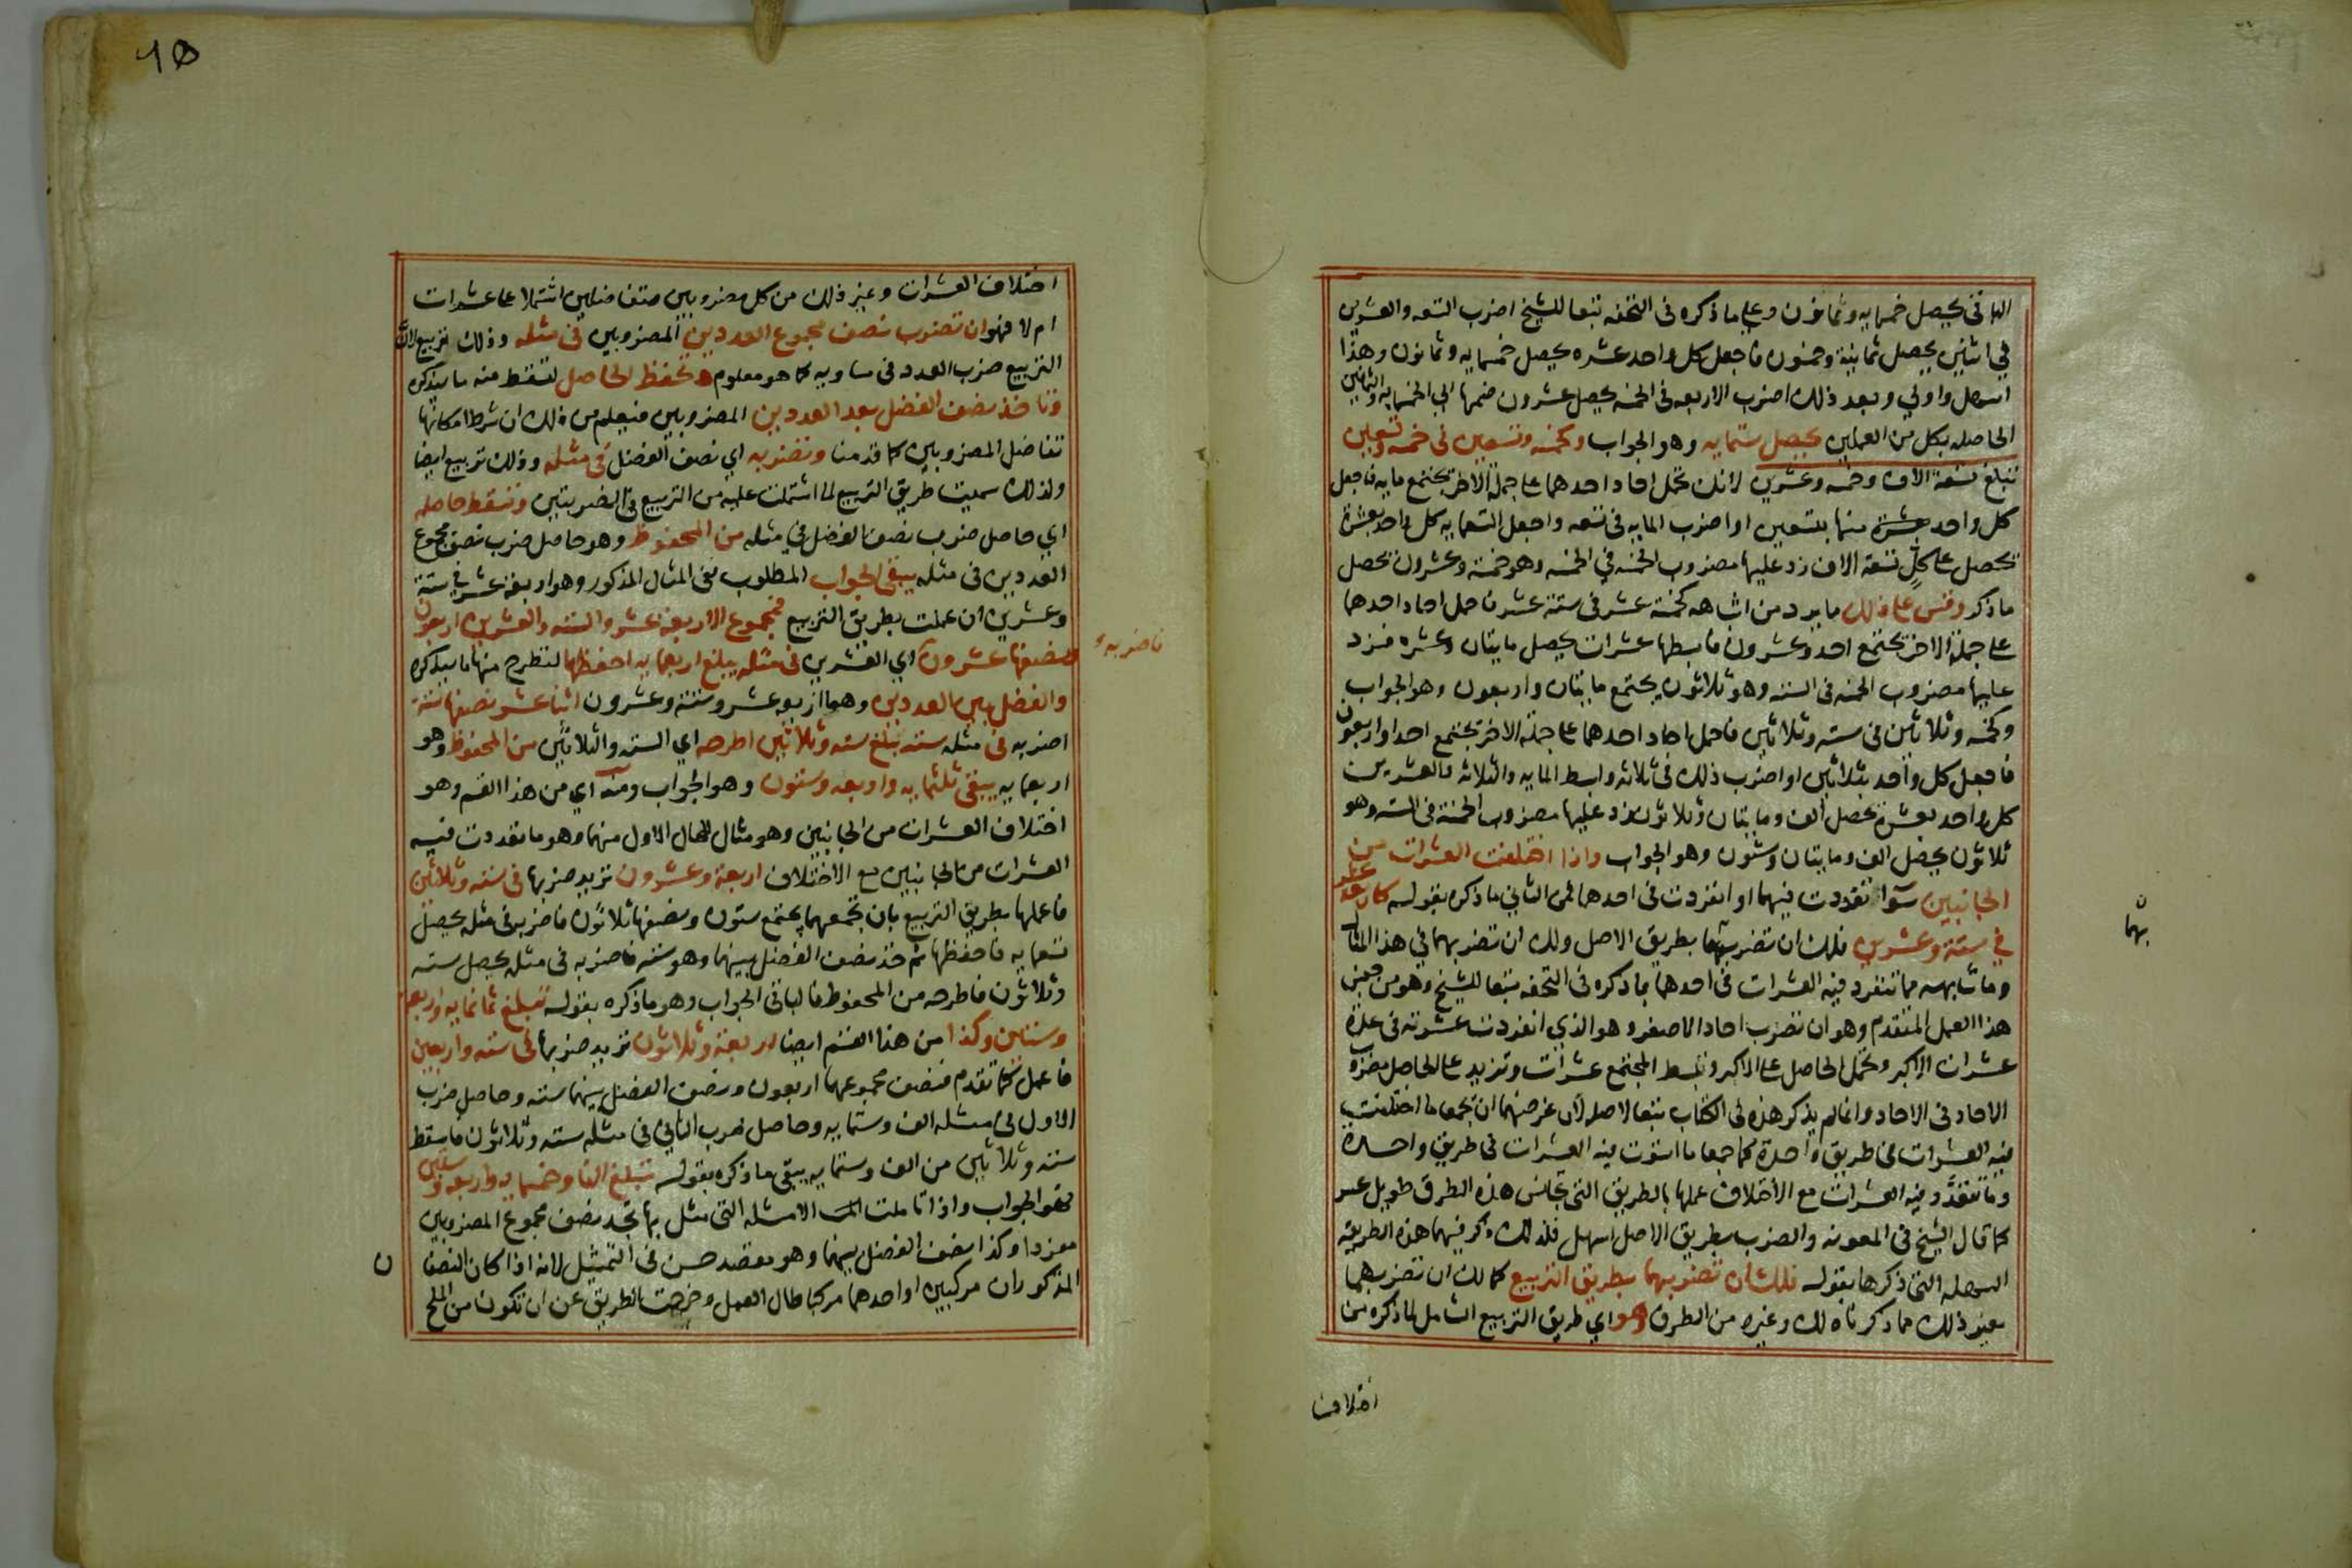 الباقي يحصل خمسمايه وثمانون وعلى ما ذكره في التحفه تبعا للشيخ اضرب التسعه والعشرين
في اثنين يحصل ثمانية وخمسون فاجعل كل واحد عشره يحصل خمسمايه وثمانون وهذا
اسهل واولي وبعد ذلك اضرب الاربعه في الخمسه يحصل عشرون ضمها الي الخمسمايه والثمانين
الحاصله بكل من العملين يحصل ستمايه وهو الجواب وكخمسه وتسعين في خمسه وتسعين
تبلغ تسعة الاف وخمسه وعشرين لانك تحمل احاد احدهما على جملة الاخر يجتمع مايه فاجعل
كل واحد بعشرة منها بتسعين او اضرب المايه في تسعه واجعل التسعمايه كل واحد بعشرة
تحصل على كل تسعة الاف زد عليها مضروب الخمسه في الخمسه وهو خمسة وعشرون تحصل
ما ذكر وقس على ذلك ما يرد من اشباهه كخمسة عشر في ستة عشر فاحمل احاد احدهما
على جملة الاخر يجتمع احد وعشرون فابسطها عشرات يحصل مايتان وعشره فزد
عليها مضروب الخمسه في السته وهو ثلاثون يجتمع مايتان واربعون وهو الجواب
وكخمسه وثلاثين في سته وثلاثين فاحمل احاد احدهما على جملة الاخر يجتمع احد واربعون
فاجعل كل واحد بثلاثين او اضرب ذلك في ثلاثه وابسط المايه والثلاثه والعشرين
كل واحد بعشرة يحصل الف ومايتان وثلاثون زد عليها مضروب الخمسة في السته وهو
ثلاثون يحصل الف ومايتان وستون وهو الجواب واذا اختلفت العشرات من
الجانبين سوا تعددت فيهما او انفردت في احدهما فمن الثاني ما ذكره بقوله كاربعة عشر
في ستة وعشرين فلك ان تضربهما بطريق الاصل ولك ان تضربهما في هذا المثال
وما شابهه مما تنفرد فيه العشرات في احدهما بما ذكره في التحفه تبعا للشيخ وهو من جنس
هذا العمل المتقدم وهو ان تضرب احاد الاصغر وهو الذي انفردت عشرته في عدة
عشرات الاكبر وتحمل الحاصل على الاكبر وتبسط المجتمع عشرات وتزيد على الحاصل مضروب
الاحاد في الاحاد وانما لم يذكر هذه في الكتاب تبعا لاصله لان غرضهما ان تجمعا ما اختلفت
فيه العشرات في طريق واحدة كما جمعا ما استوت فيه العشرات في طريق واحدة
وما تعدد فيه العشرات مع الاختلاف عملها بالطريق التي تجانس هذه الطرق طويل عسر
كما قال الشيخ في المعونه والضرب بطريق الاصل اسهل فلذلك ذكر فيهما هذه الطريقه
السهله التي ذكرها بقوله فلك ان تضربهما بطريق التربيع كما لك ان تضربهما
بغير ذلك مما ذكرناه لك وغيره من الطرق وهو اي طريق التربيع الشامل لما ذكره من
اختلاف
بهما
10
اختلاف العشرات وغير ذلك من كل مضروبين متفاضلين اشتملا على عشرات
ام لا فهو ان تضرب نصف مجموع العددين المضروبين في مثله وذلك تربيع لان
التربيع ضرب العدد في مساويه كما هو معلوم وتحفظ الحاصل لتسقط منه ما سيذكره
وتاخذ نصف الفضل بعد العددين المضروبين فيعلم من ذلك ان شرط امكانها
تفاضل المضروبين كما قدمنا وتضربه اي نصف الفضل في مثله وذلك تربيع ايضا
ولذلك سميت طريق التربيع لما اشتملت عليه من التربيع في الضربتين وتسقط حاصله
اي حاصل ضرب نصف الفضل في مثله من المحفوظ وهو حاصل ضرب نصف مجموع
العددين في مثله يبقى الجواب المطلوب ففي المثال المذكور وهو اربعة عشر في ستة
وعشرين ان عملت بطريق التربيع فمجموع الاربعة عشر والسته والعشرين اربعون
نصفها عشرون اي العشرين في مثله يبلغ اربعمايه احفظها لتطرح منها ما سيذكره
والفضل بين العددين وهما اربعه عشر وستة وعشرون اثنا عشر نصفها ستة
اضربه في مثله سته تبلغ سته وثلاثين اطرحه اي السته والثلاثين من المحفوظ وهو
اربعمايه يبقى ثلثمايه واربعه وستون وهو الجواب ومنه اي من هذا القسم وهو
اختلاف العشرات من الجانبين وهو مثال للحال الاول منهما وهو ما تعددت فيه
العشرات من الجانبين مع الاختلاف اربعة وعشرون تريد ضربها في سته وثلاثين
فاعملها بطريق التربيع بان تجمعهما يجتمع ستون ونصفها ثلاثون فاضربه في مثله يحصل
تسعمايه فاحفظها ثم خذ نصف الفضل بينهما وهو سته فاضربه في مثله يحصل سته
وثلاثون فاطرحه من المحفوظ فالباقي الجواب وهو ما ذكره بقوله تبلغ ثمانمايه واربعه
وستين وكذا من هذا القسم ايضا اربعة وثلاثون تريد ضربها في سته واربعين
فاعمل كما تقدم فنصف مجموعهما اربعون ونصف الفضل بينهما سته وحاصل ضرب
الاول في مثله الف وستمايه وحاصل ضرب الثاني في مثله سته وثلاثون فاسقط
سته وثلاثين من الف وستمايه يبقى ما ذكره بقوله تبلغ الفا وخمسمايه واربعه وستين
فهو الجواب واذا تاملت الامثله التي مثل بها تجد نصف مجموع المضروبين
مفردا وكذا نصف الفضل بينهما وهو مقصد حسن في التمثيل لانه اذا كان النصفان
المذكوران مركبين او احدهما مركبا طال العمل وخرجت الطريق عن ان تكون من الملح
فاضربه
ن